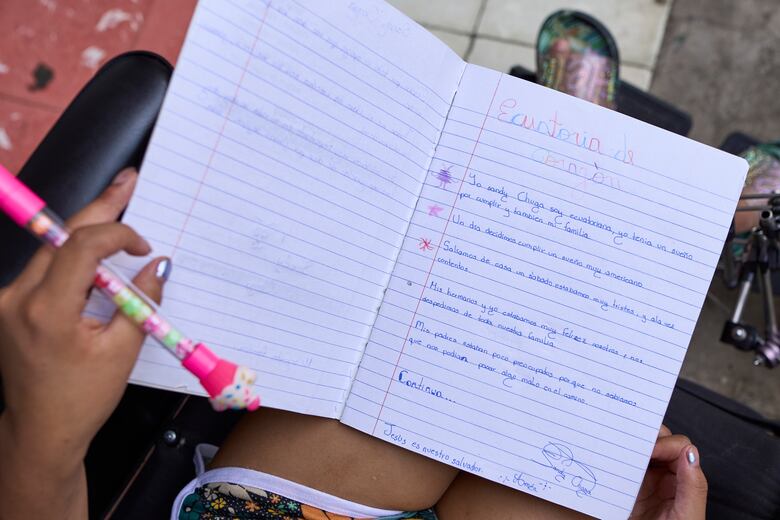 Ecuatoria de
corazón
Yo sandy Chuga soy ecuatoriana, yo tenia un sueño
por cumplir y tambien mi familia.
Un día decidimos cumplir un sueño muy americano.
Salíamos de casa un sabado estabamos muy tristes, y ala vez
contentos.
Mis hermanos y yo estabamos muy felices nosotros y nos
despedimos de toda nuestra familia.
Mis padres estaban poco preocupados porque no sabiamos
que nos podian pasar algo malo en el camino.
Continua...
Jesús es nuestro salvador.